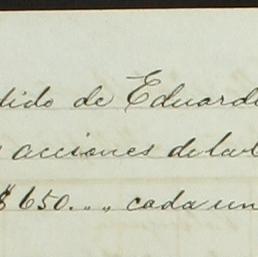 dido de Eduard
acciones de la
$650.,, cada un